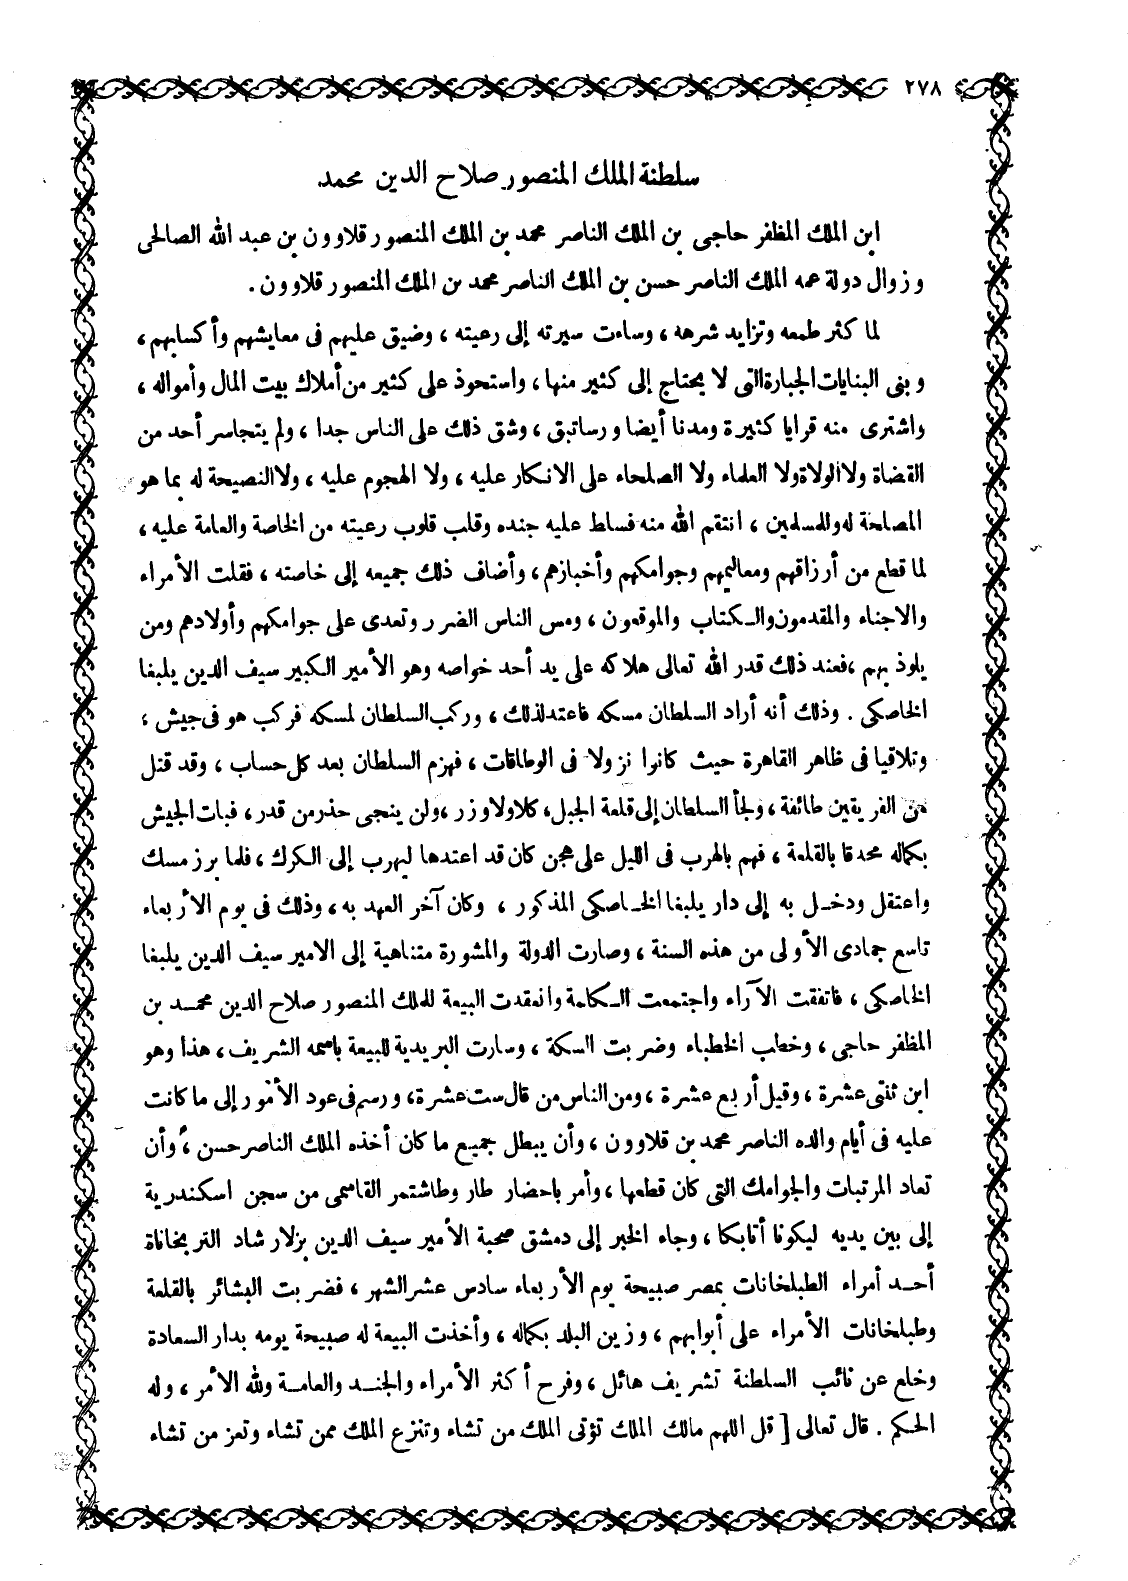 ٢٧٨
سلطنة الملك المنصور صلاح الدين محمد
ابن الملك المظفر حاجى بن الملك الناصر محمد بن الملك المنصور قلاوون بن عبد الله الصالحى
وزوال دولة عمه الملك الناصر حسن بن الملك الناصر محمد بن الملك المنصور قلاوون .
لما كثر طمعه وتزايد شرهه ، وساءت سيرته إلى رعيته ، وضيق عليهم فى معايشهم وأكسابهم ،
وبنى البنايات الجبارة التى لا يحتاج إلى كثير منها ، واستحوذ على كثير من أملاك بيت المال وأمواله ،
واشترى منه قرايا كثيرة ومدنا أيضا ورساتيق ، وشق ذلك على الناس جدا ، ولم يتجاسر أحد من
القضاة ولا الولاة ولا العلماء ولا الصلحاء على الانكار عليه ، ولا الهجوم عليه ، ولا النصيحة له بما هو
المصلحة له وللمسلمين ، انتقم الله منه فسلط عليه جنده وقلب قلوب رعيته من الخاصة والعامة عليه ،
لما قطع من أرزاقهم ومعاليمهم وجوامكهم وأخبازهم ، وأضاف ذلك جميعه إلى خاصته ، فقلت الأمراء
والاجناء والمقدمون والكتاب والموقعون ، ومس الناس الضرر وتعدى على جوامكهم وأولادهم ومن
يلوذ بهم ، فعند ذلك قدر الله تعالى هلاكه على يد أحد خواصه وهو الأمير الكبير سيف الدين يلبغا
الخاصكى . وذلك أنه أراد السلطان مسكه فاعتد لذلك ، وركب السلطان لمسكه فركب هو فى جيش ،
وتلاقيا فى ظاهر القاهرة حيث كانوا نزولا فى الوطاقات ، فهزم السلطان بعد كل حساب ، وقد قتل
من الفريقين طائفة ، ولجأ السلطان إلى قلعة الجبل ، كلا ولا وزر ، ولن ينجى حذر من قدر ، فبات الجيش
بكماله محدقا بالقلعة ، فهم بالهرب فى الليل على هجن كان قد اعتدها ليهرب إلى الكرك ، فلما برز مسك
واعتقل ودخل به إلى دار يلبغا الخاصكى المذكور ، وكان آخر العهد به ، وذلك فى يوم الأربعاء
تاسع جمادى الأولى من هذه السنة ، وصارت الدولة والمشورة متناهية إلى الامير سيف الدين يلبغا
الخاصكى ، فاتفقت الآراء واجتمعت الكلمة وانعقدت البيعة للملك المنصور صلاح الدين محمد بن
المظفر حاجى ، وخطب الخطباء وضربت السكة ، وسارت البريدية للبيعة باسمه الشريف ، هذا وهو
ابن ثنتى عشرة ، وقيل أربع عشرة ، ومن الناس من قال ست عشرة ، ورسم فى عود الأمور إلى ما كانت
عليه فى أيام والده الناصر محمد بن قلاوون ، وأن يبطل جميع ما كان أخذه الملك الناصر حسن ، وأن
تعاد المرتبات والجوامك التى كان قطعها ، وأمر باحضار طار وطاشتمر القاسمى من سجن اسكندرية
إلى بين يديه ليكونا أتابكا ، وجاء الخبر إلى دمشق صحبة الأمير سيف الدين بزلار شاد التربخاناة
أحد أمراء الطبلخانات بمصر صبيحة يوم الأربعاء سادس عشر الشهر ، فضربت البشائر بالقلعة
وطبلخانات الأمراء على أبوابهم ، وزين البلد بكماله ، وأخذت البيعة له صبيحة يومه بدار السعادة
وخلع عن نائب السلطنة تشريف هائل ، وفرح أكثر الأمراء والجند والعامة ولله الأمر ، وله
الحكم . قال تعالى [ قل اللهم مالك الملك تؤتى الملك من تشاء وتنزع الملك ممن تشاء وتعز من تشاء